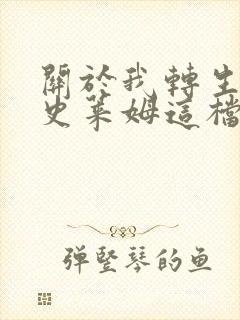 關於我轉生
史萊姆這檔
弹竖琴的鱼